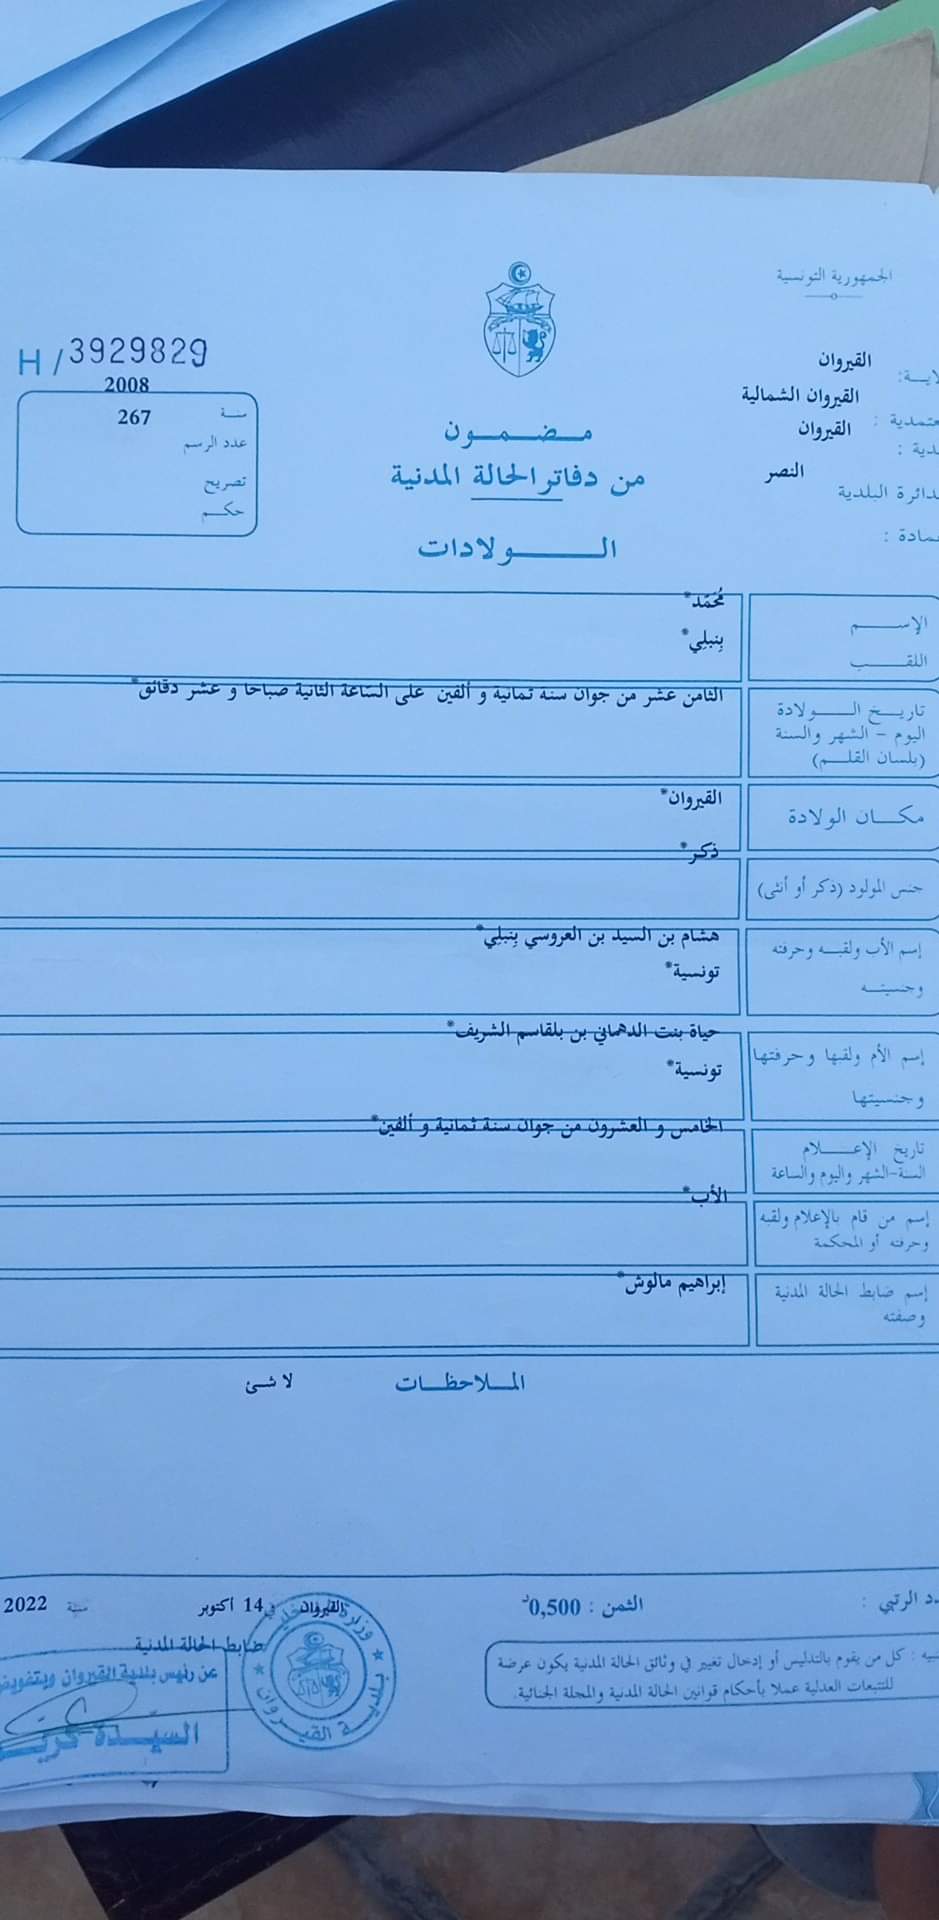 الجمهورية التونسية
القيروان
القيروان الشمالية
القيروان
النصر
الدائرة البلدية
H/3929829
سنة 2008
عدد الرسم 267
تصريح
حكم
مضمون
من دفاتر الحالة المدنية
الولادات
الإسم
مُحَمّد*
اللقب
بِنبلِي*
تاريخ الولادة
اليوم - الشهر والسنة
(بلسان القلم)
الثامن عشر من جوان سنة ثمانية و ألفين على السّاعة الثانية صباحا و عشر دقائق*
مكان الولادة
القيروان*
جنس المولود (ذكر أو أنثى)
ذكر*
إسم الأب ولقبه وحرفته
وجنسيته
هشام بن السيد بن العروسي بِنبلِي*
تونسية*
إسم الأم ولقبها وحرفتها
وجنسيتها
حياة بنت الدهماني بن بلقاسم الشريف*
تونسية*
تاريخ الإعلام
السنة-الشهر واليوم والساعة
الخامس و العشرون من جوان سنة ثمانية و ألفين*
إسم من قام بالإعلام ولقبه
وحرفته أو المحكمة
الأب*
إسم ضابط الحالة المدنية
وصفته
إبراهيم مالوش*
الملاحظات
لا شئ
الرتبي :
الثمن : 0,500د
القيروان 14 أكتوبر سنة 2022
ضابط الحالة المدنية
كل من يقوم بالتدليس أو إدخال تغيير في وثائق الحالة المدنية يكون عرضة
للتتبعات العدلية عملا بأحكام قوانين الحالة المدنية والمجلة الجنائية.
عن رئيس بلدية القيروان وبتفويض
السيّدة
بلدية القيروان